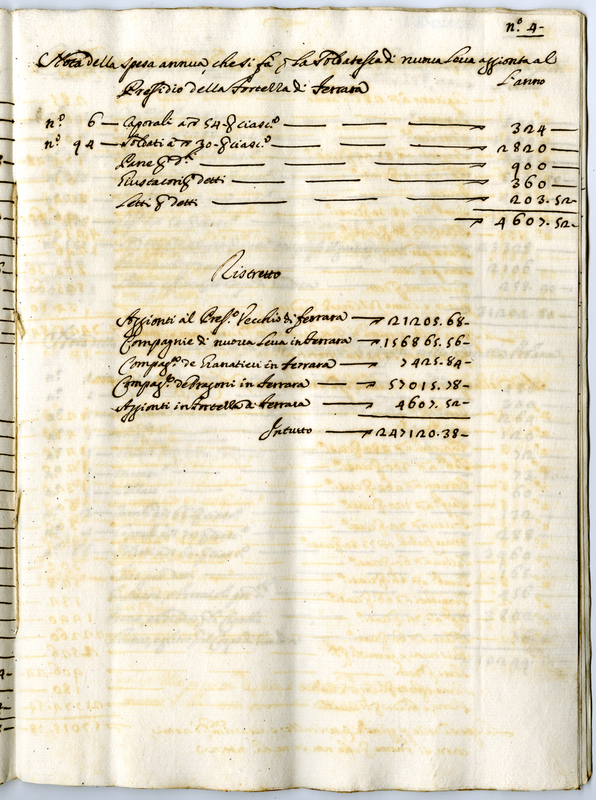 n.º 4-
Nota della spesa annua, che si fa p la Soldatesca di nuova Leva aggionta al
Presidio della Fortezza di Ferrara
L'anno
n.º 6 — Caporali a 54 p ciasc.º — 324 —
n.º 94 — Soldati a 30 p ciasc.º — 2820 —
Pane p d.i — 900 —
p detti — 360 —
Letti p detti — 203.52 -
4607.52 -
Ristretto
Aggionti al Pres.º Vecchio di Ferrara — 21205.68 -
Compagnie di nuova Leva in Ferrara — 156865.56 -
Compag.e de Granatieri in Ferrara — 7425.84 -
Compag.e de Dragoni in Ferrara — 57015.78 -
Aggionti in Fortezza di Ferrara — 4607.52 -
In tutto — 247120.38 -